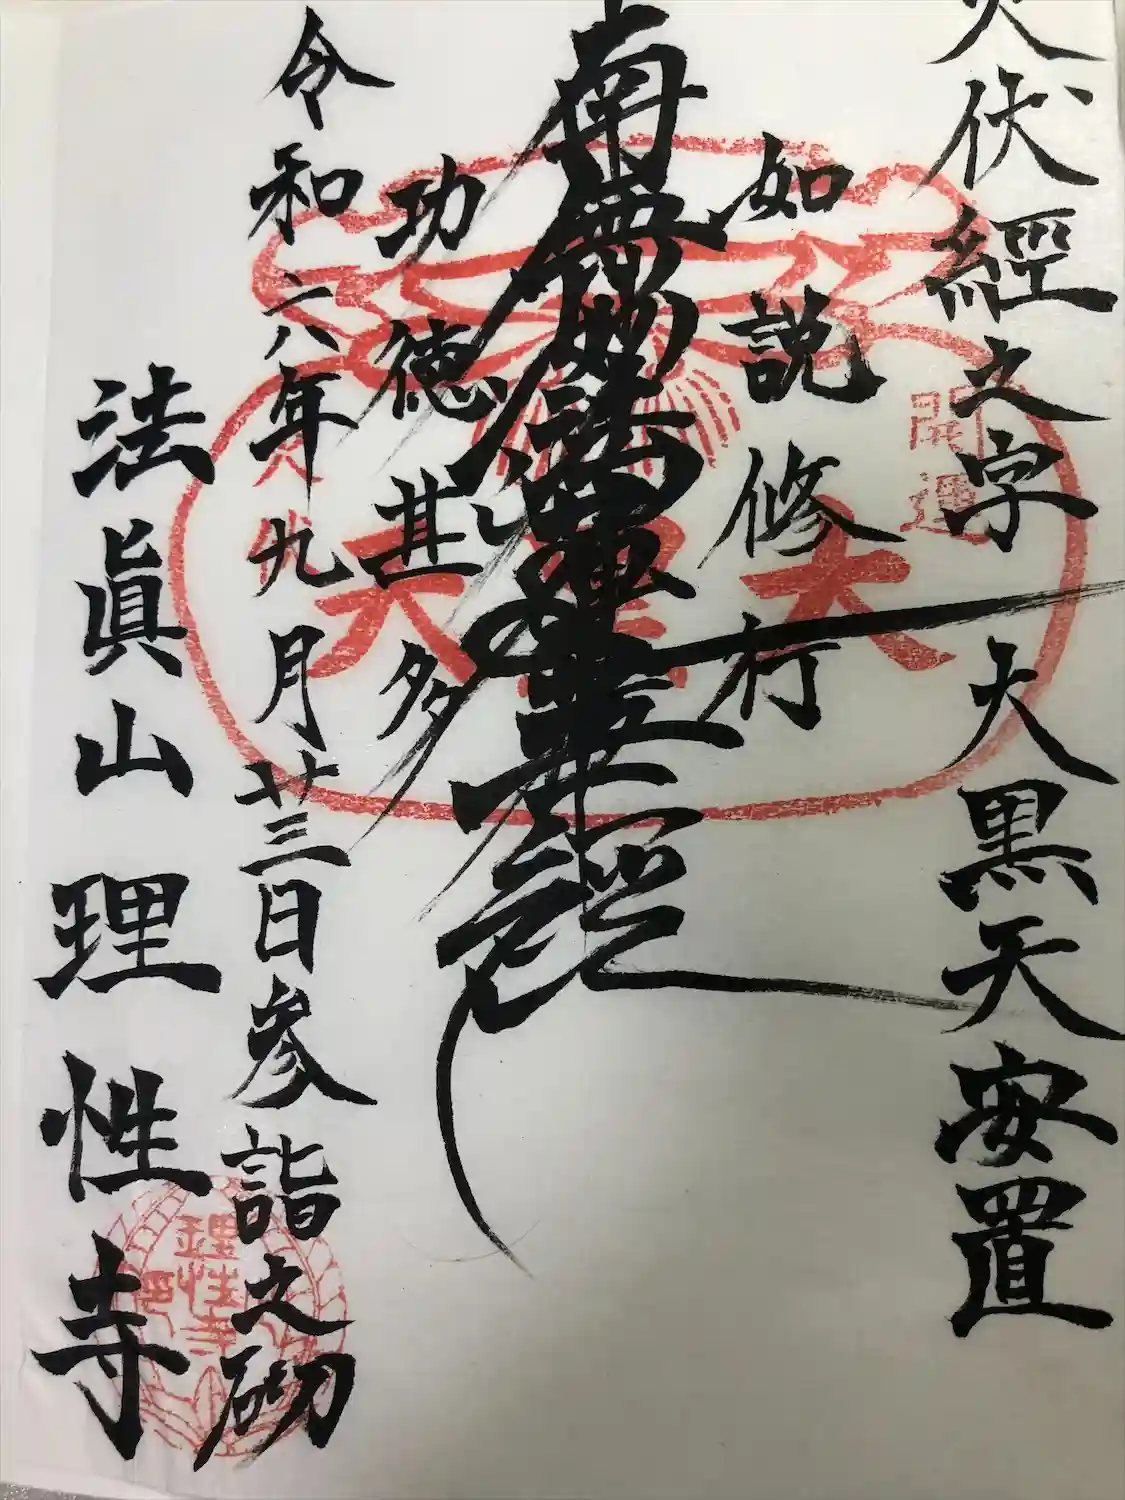 火伏経之字 大黒天安置
如説修行
南無妙法蓮華経
功徳甚多
令和六年九月廿三日参詣之砌
法眞山理性寺
開運
大黒天
理性寺